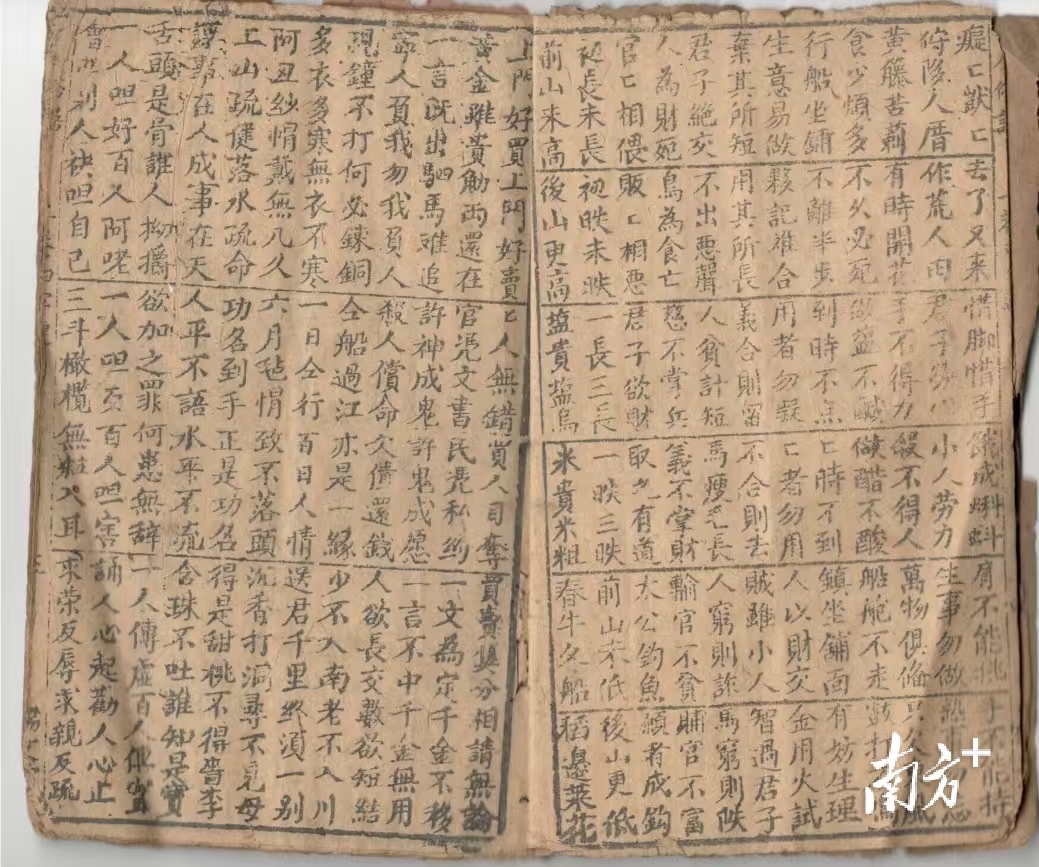 癡匕獃匕 去了又来 惜脚惜手 成蝌蚪 肩不能挑 手不能持
侍陵人厝 作荒人田 君子勞心 小人勞力 生事勿做 熟事勿忘
黄藤苦莿 有時開花 手不得力 不得人 萬物俱俻 只欠
食少煩多 不久必死 做盐不鹹 做醋不酸 船舵不走 鼓打
行船坐鋪 不離半步 到時不点 匕時不到 鎮坐鋪面 有妨生理
生意易做 夥記难合 用者勿疑 匕者勿用 人以財交 金用火試
棄其所短 用其所長 義合則留 不合則去 賊雖小人 智過君子
君子絶交 不出悪聲 人貧計短 馬瘦毛長 人窮則詐 馬窮則跌
人為財死 鳥為食亡 慈不掌兵 義不掌財 輸官不貧 脯官不富
官匕相偎 販匕相悪 君子欲財 取之有道 太公釣魚 願者成鈎
初長未長 初昳未昳 一長三長 一昳三昳 前山不低 後山更低
前山来高 後山更高 盐貴盐烏 米貴米粗 春牛夂船 稻邊菜花
上門好買上門好賣 匕人無錯買人目奪 買賣挨分相請無論
黄金雖貴勧両還在 官凴文書民凴私約 一文為定千金不移
一言既出駟馬难追 許神成鬼許鬼成愿 一言不中千金無用
寧人負我勿我負人 殺人償命欠債還錢 人欲長交數欲短結
現鐘不打何必錬銅 仝船過江亦是一緣 少不入南老不入川
多衣多寒無衣不寒 一日仝行百日人情 送君千里終須一别
阿丑紗帽戴無几久 六月毡帽致不落頭 沉香打洞尋不見母
上山疏健落水疏命 功名到手正是功名 得是甜桃不得啬李
謀事在人成事在天 人平不語水平不流 含珠不吐誰知是寳
舌頭是骨誰人拗折 欲加之罪何患無辞 一人傳虚百人傳實
一人呾好百人阿咾 一人呾歹百人呾害 誦人心起勸人心止
别人袂呾自己 三斗橄欖無粒入耳 求荣反辱求親反疏
南方+